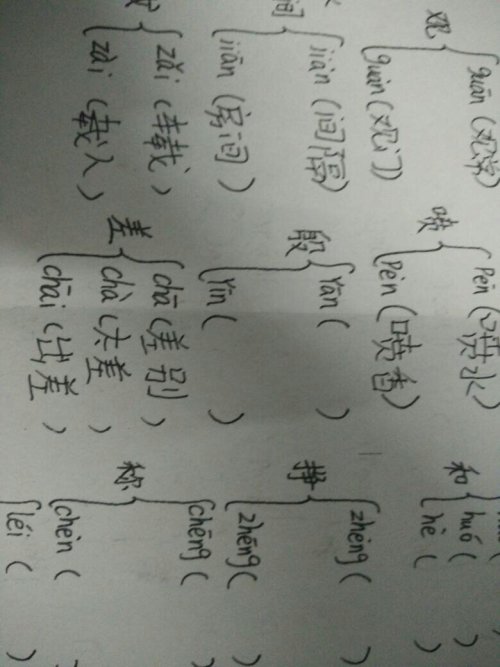 guān (观察) pēn (喷水)
观 喷 和 huó ( )
guàn (观 ) pèn (喷香) hè ( )
jiàn (间隔) yān ( ) zhèng ( )
间 殷 挣
jiān (房间) yīn ( ) zhēng ( )
zǎi ( 载) chā (差别) chēng ( )
差 称
zài (载入) chà (太差)
chāi (出差) chèn ( )
léi ( )